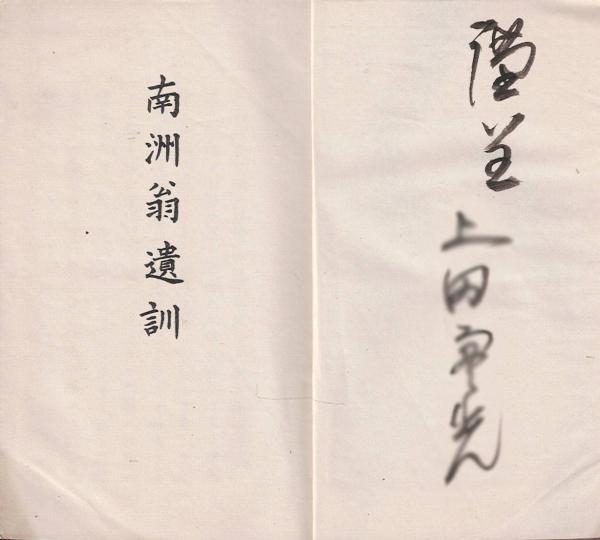 謹呈
上田
南洲翁遺訓